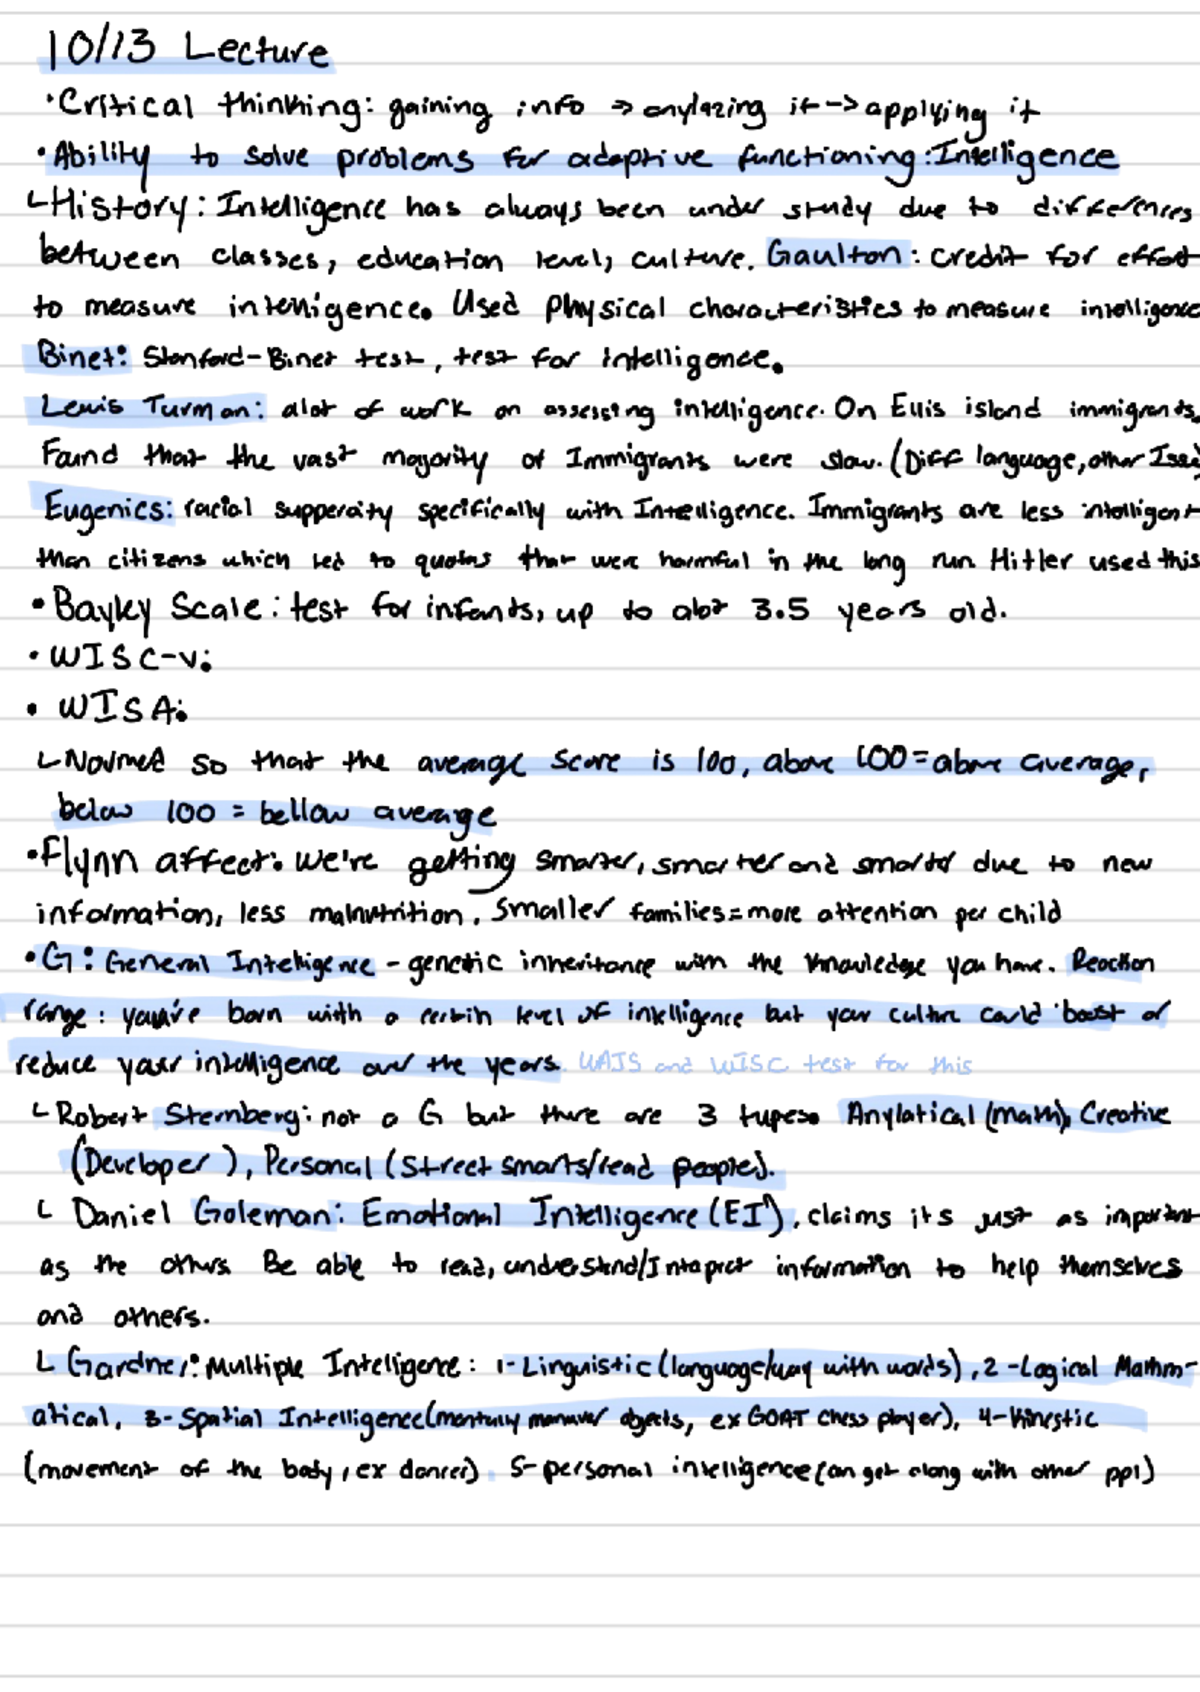 10/13 Lecture
•Critical thinking: gaining info → anylazing it -> applying it
•Ability to solve problems for adaptive functioning: Intelligence
└History: Intelligence has always been under study due to differences
between classes, education level, culture. Gaulton: credit for effort
to measure intelligence. Used physical characteristics to measure intelligence
Binet: Stanford-Binet test, test for intelligence.
Lewis Turman: alot of work on assessing intelligence. On Ellis island immigrants.
Found that the vast majority of Immigrants were slow. (Diff language, other
Eugenics: racial supperoity specifically with Intelligence. Immigrants are less intelligent
than citizens which led to quotas that were harmful in the long run Hitler used this
•Bayky Scale: test for infants, up to abt 3.5 years old.
•WISC-V:
• WISA:
└Normed so that the average score is 100, above 100 = above average,
below 100 = bellow average
•Flynn affect: we're getting smarter, smarter and smarter due to new
information, less malnutrition, smaller families = more attention per child
•G: General Intelligence - genetic inheritance with the knowledge you have. Reaction
range: you're born with a certain level of intelligence but your culture could boost or
reduce your intelligence over the years. WAIS and WISC test for this
└Robert Sternberg: not a G but there are 3 tupes. Anylatical (math), Creative
(Developer), Personal (Street smarts/read people).
└ Daniel Goleman: Emotional Intelligence (EI), claims its just as important
as the others. Be able to read, understand/Intapret information to help themselves
and others.
└ Gardner: Multiple Intelligence: 1-Linguistic (language/way with words), 2-Logical Mathm-
atical, 3-Spatial Intelligence (mentally manuver objects, ex GOAT chess player), 4-Kinestic
(movement of the body, ex dancer). 5-personal intelligence (can get along with other ppl)